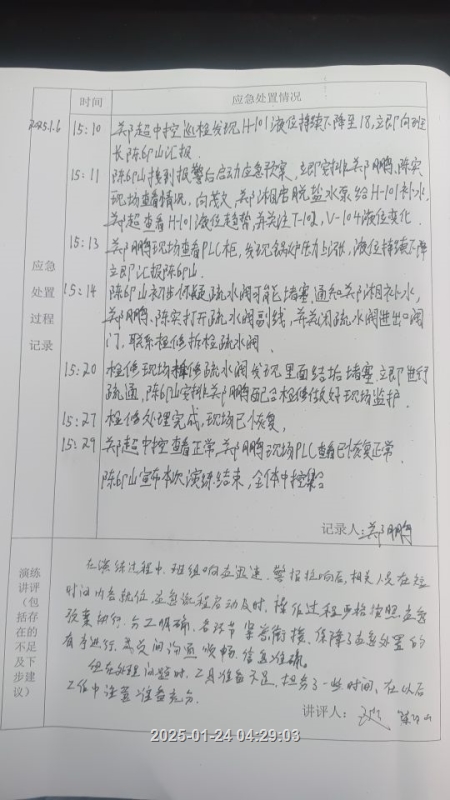 时间 应急处置情况
2025.1.6 15:10 郑超中控巡检发现H-101液位持续下降至18,立即向班
长陈邱山汇报.
15:11 陈邱山接到报警后启动应急预案,立即安排郑鹏鹏、陈实
现场查看情况,向茂久、郑湘启脱盐水泵给H-101补水,
郑超查看H-101液位趋势,并关注T-102,V-104液位变化.
15:13 郑鹏鹏现场查看PLC柜,发现锅炉压力上涨,液位持续下降
立即汇报陈邱山.
15:14 陈邱山初步怀疑疏水阀可能堵塞,通知郑湘补水,
郑鹏鹏、陈实打开疏水阀副线,并关闭疏水阀进出口阀
门,联系检修拆检疏水阀.
15:20 检修现场拆修疏水阀发现里面结垢堵塞,立即进行
疏通,陈邱山安排郑鹏鹏配合检修做好现场监护.
15:27 检修处理完成,现场已恢复,
15:29 郑超中控查看正常,郑鹏鹏现场PLC查看已恢复正常.
陈邱山宣布本次演练结束,全体中控集合
应急
处置
过程
记录
记录人:郑鹏鹏
演练
讲评
(包
括存
在的
不足
及下
步建
议)
在演练过程中,班组响应迅速,警报拉响后,相关人员在短
时间内各就位,应急流程启动及时,操作过程严格按照应急
预案执行,分工明确,各环节紧密衔接,保障了应急处置的
有序进行,人员间沟通顺畅,信息准确.
但在处理问题时,工具准备不足,耽务了一些时间,在以后
工作中注意准备充分.
讲评人: 陈邱山
2025-01-24 04:29:03